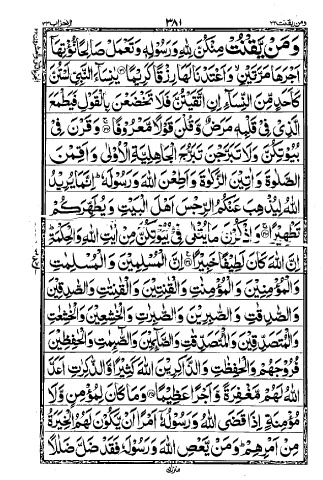 ومن يقنت ٢٢ ٣٨١ الاحزاب ٣٣
وَمَنْ يَّقْنُتْ مِنْكُنَّ لِلّٰهِ وَرَسُوْلِهٖ وَتَعْمَلْ صَالِحًا نُّؤْتِهَآ
اَجْرَهَا مَرَّتَيْنِ وَاَعْتَدْنَا لَهَا رِزْقًا كَرِيْمًا يٰنِسَآءَ النَّبِيِّ لَسْتُنَّ
كَاَحَدٍ مِّنَ النِّسَآءِ اِنِ اتَّقَيْتُنَّ فَلَا تَخْضَعْنَ بِالْقَوْلِ فَيَطْمَعَ
الَّذِيْ فِيْ قَلْبِهٖ مَرَضٌ وَّقُلْنَ قَوْلًا مَّعْرُوْفًا وَقَرْنَ فِيْ
بُيُوْتِكُنَّ وَلَا تَبَرَّجْنَ تَبَرُّجَ الْجَاهِلِيَّةِ الْاُوْلٰى وَاَقِمْنَ
الصَّلٰوةَ وَاٰتِيْنَ الزَّكٰوةَ وَاَطِعْنَ اللّٰهَ وَرَسُوْلَهٗ اِنَّمَا يُرِيْدُ
اللّٰهُ لِيُذْهِبَ عَنْكُمُ الرِّجْسَ اَهْلَ الْبَيْتِ وَيُطَهِّرَكُمْ
تَطْهِيْرًا وَاذْكُرْنَ مَا يُتْلٰى فِيْ بُيُوْتِكُنَّ مِنْ اٰيٰتِ اللّٰهِ وَالْحِكْمَةِ
اِنَّ اللّٰهَ كَانَ لَطِيْفًا خَبِيْرًا اِنَّ الْمُسْلِمِيْنَ وَالْمُسْلِمٰتِ
وَالْمُؤْمِنِيْنَ وَالْمُؤْمِنٰتِ وَالْقٰنِتِيْنَ وَالْقٰنِتٰتِ وَالصّٰدِقِيْنَ
وَالصّٰدِقٰتِ وَالصّٰبِرِيْنَ وَالصّٰبِرٰتِ وَالْخٰشِعِيْنَ وَالْخٰشِعٰتِ
وَالْمُتَصَدِّقِيْنَ وَالْمُتَصَدِّقٰتِ وَالصَّآئِمِيْنَ وَالصّٰٓئِمٰتِ وَالْحٰفِظِيْنَ
فُرُوْجَهُمْ وَالْحٰفِظٰتِ وَالذّٰكِرِيْنَ اللّٰهَ كَثِيْرًا وَّالذّٰكِرٰتِ اَعَدَّ
اللّٰهُ لَهُمْ مَّغْفِرَةً وَّاَجْرًا عَظِيْمًا وَمَا كَانَ لِمُؤْمِنٍ وَّلَا
مُؤْمِنَةٍ اِذَا قَضَى اللّٰهُ وَرَسُوْلُهٗٓ اَمْرًا اَنْ يَّكُوْنَ لَهُمُ الْخِيَرَةُ
مِنْ اَمْرِهِمْ وَمَنْ يَّعْصِ اللّٰهَ وَرَسُوْلَهٗ فَقَدْ ضَلَّ ضَلٰلًا